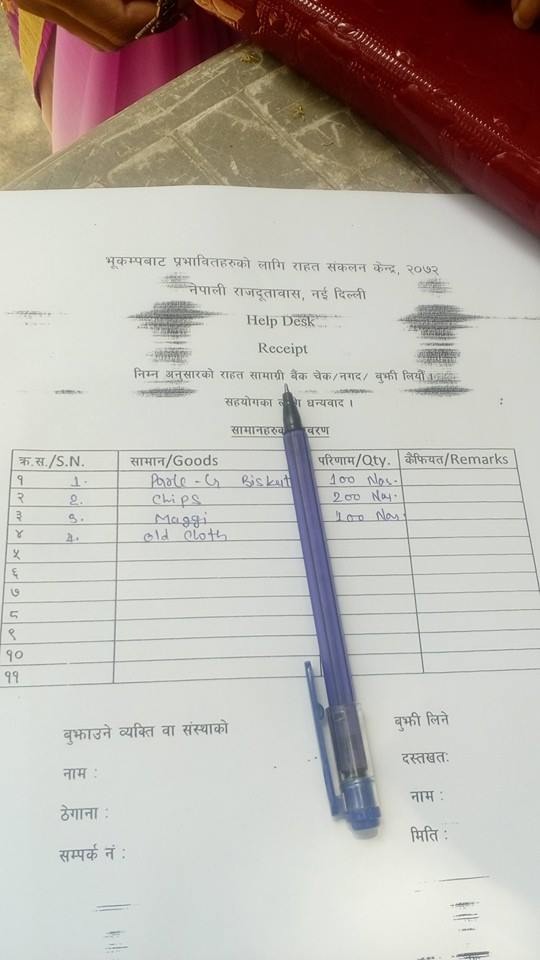 भूकम्पबाट प्रभावितहरुको लागि राहत संकलन केन्द्र, २०७२
नेपाली राजदूतावास, नई दिल्ली
Help Desk
Receipt
निम्न अनुसारको राहत सामाग्री बैंक चेक/नगद/ बुझी लियौं ।
सहयोगका धन्यवाद ।
सामानहरुको
क्र.स./S.N. सामान/Goods परिणाम/Qty. कैफियत/Remarks
१ 1. Parle-G Biskut 100 Nos.
२ 2. Chips 200 Nos.
३ 3. Maggi Nos.
४ 4. Old Cloth
५
६
७
८
९
१०
११
बुझाउने व्यक्ति वा संस्थाको बुझी लिने
नाम : दस्तखतः
ठेगाना : नाम :
सम्पर्क नं : मिति :